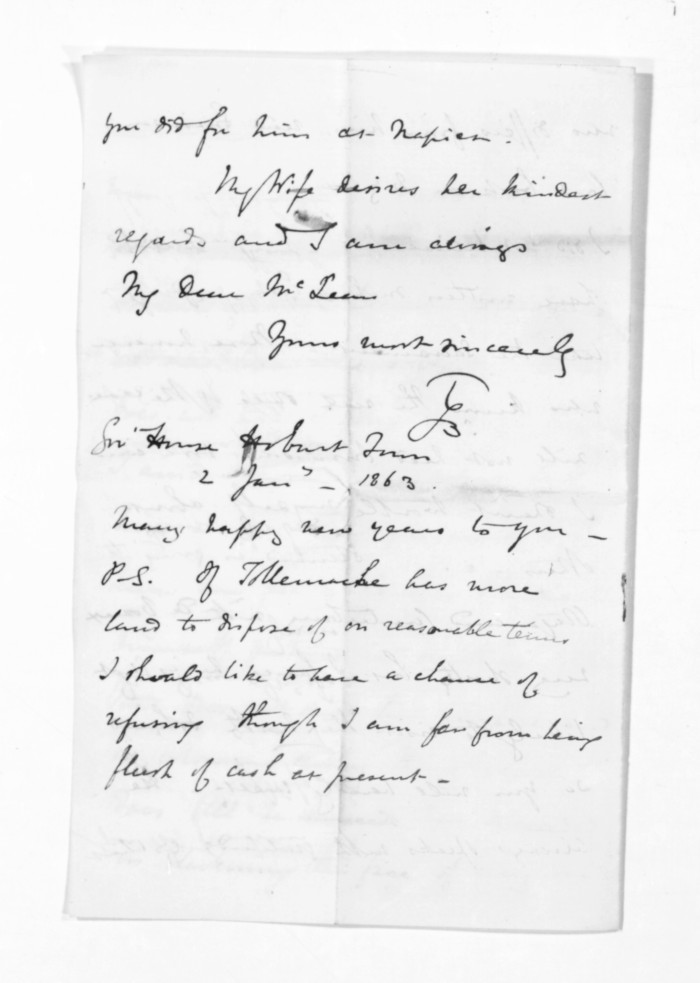 you did for him at Napier.
My Wife desires her kindest
regards and I am always
My Dear McLean
Yours most sincerely
TGB
Gov' House Hobart Town
2 Jany - 1863.
Many happy new years to you -
P.S. If Tollemache has more
land to dispose of on reasonable terms
I should like to have a chance of
refusing though I am far from being
flush of cash at present -